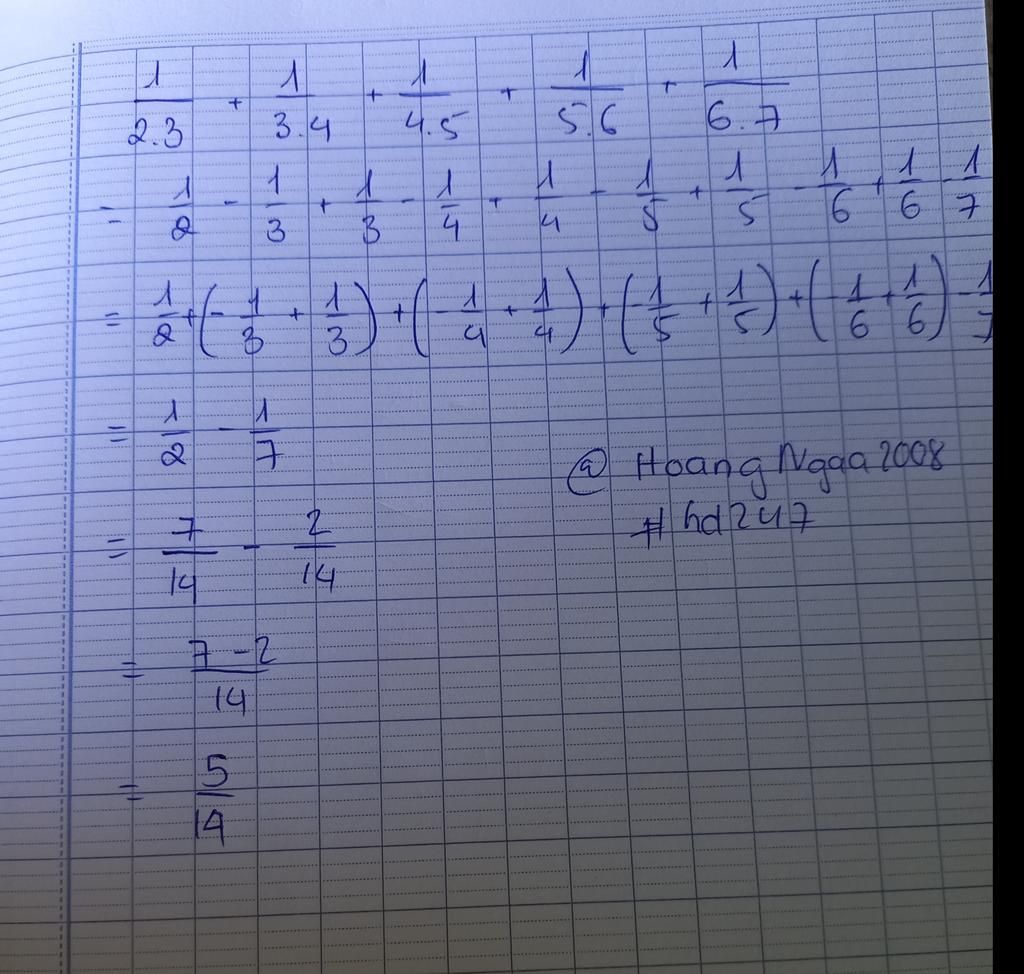 1/2.3 + 1/3.4 + 1/4.5 + 1/5.6 + 1/6.7
= 1/2 - 1/3 + 1/3 - 1/4 + 1/4 - 1/5 + 1/5 - 1/6 + 1/6 - 1/7
= 1/2 + (- 1/3 + 1/3) + (- 1/4 + 1/4) + (- 1/5 + 1/5) + (- 1/6 + 1/6) - 1/7
= 1/2 - 1/7
@ Hoang Ngaa 2008
= 7/14 - 2/14
# hd247
= 7 - 2/14
= 5/14